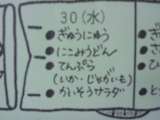 30(水)
●ぎゅうにゅう
●にこみうどん
●てんぷら
(いか・じゃがいも)
●かいそうサラダ